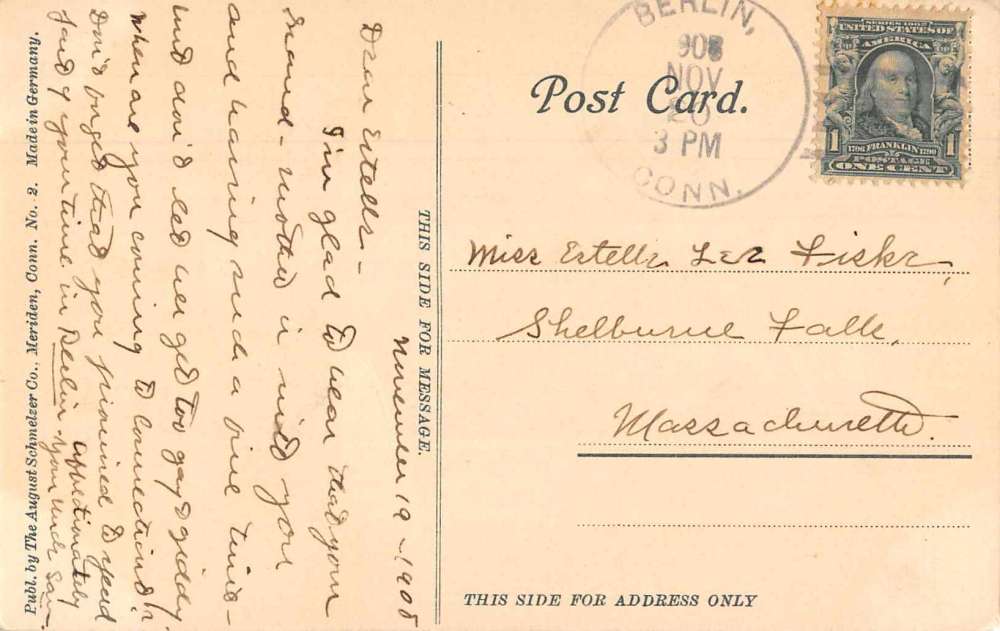 Publ. by The August Schmelzer Co., Meriden, Conn. No. 2. Made in Germany.
November 19 - 1908
Dear Estelle -
I'm glad to hear that your
Grand-mother is with you
and having such a fine time -
but don't let her get too gay & giddy.
When are you coming to Connecticut?
Don't forget that you promised to spend
part of your time in Berlin. Affectionately
Your Uncle Sam
THIS SIDE FOR MESSAGE.
Post Card.
BERLIN,
NOV
20
3 PM
CONN.
SERIES 1902
UNITED STATES OF
AMERICA
1706 FRANKLIN 1790
1 POSTAGE 1
ONE CENT
Miss Estelle Lee Fiske,
Shelburne Falls,
Massachusetts.
THIS SIDE FOR ADDRESS ONLY